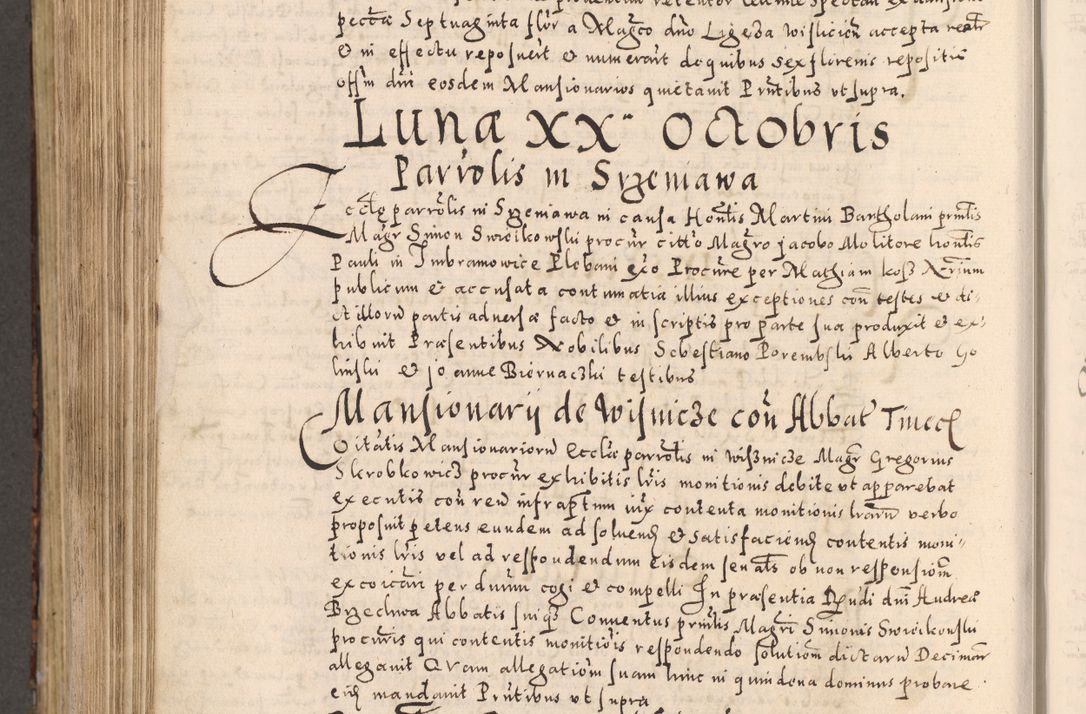 pecta Septuaginta flor a Magco dno Ligeza wislicien accepta realr
& in effectu reposuerit & numerarit de quibus sex florenis repositis
offm dni eosdem Mansionarios quietauit Prntibus vt supra.
Luna XXa Octobris
Parrolis in Srzeniawa
Ecctæ parrolis in Srzeniawa in causa Honlis Martini Bartholani prinlis
Magr Simon Swoikowski procur citto Magro Jacobo Molitore honlis
Pauli in Imbramowice Plebani ex o Procure per Mathiam Kosz Nrium
publicum & accusata contumatia illius exceptiones con testes & di-
ct illoru partis aduersæ facto & in scriptis pro parte sua produxit & ex-
hibuit Præsentibus Nobilibus Sebestiano Porembski Alberto Go
linski & Joanne Biernaczki testibus
Mansionarij de Wisnicze con Abbat Tinecen
Citatis Mansionarioru Ecclæ parrolis in Wisznicze Magr Gregorius
Skrobkowicz procur exhibitis lris monitionis debite vt apparebat
executis con reu infraptum iux contenta monitionis lraru verbo
proposuit petens eundem ad soluend & satisfaciend contentis moni-
tionis lris vel ad respondendum eisdem seu als ob non responsiom
excoicari per dnum cogi & compelli In præsentia Rndi dni Andreæ
Brzechwa Abbatis suiq Conuentus prinlis Magri Simonis Swoikowski
procuris qui contentis monitiois respondendo solutiom dictaru Decimar
allegauit Quam allegatiom suam hinc in quindena dominus probare
eid mandauit Prntibus vt supra